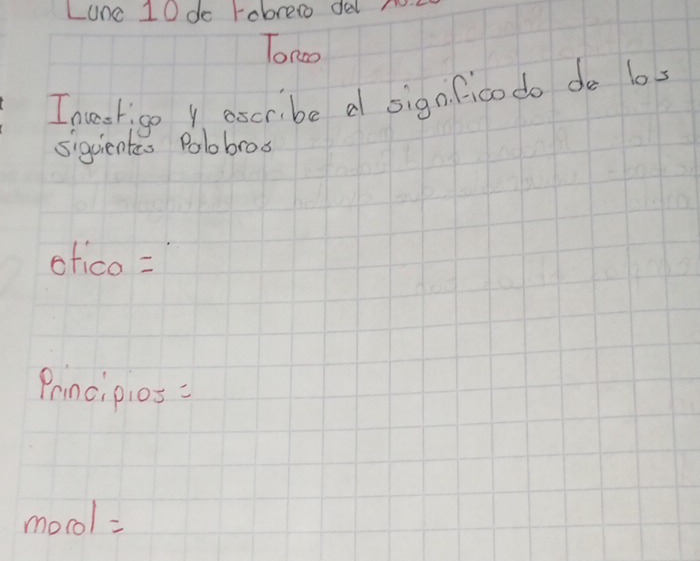 Lune 10 de Febrero del
Tarea
Investiga y escribe el significado de las
siguientes Palabras
etica =
Principios =
moral =